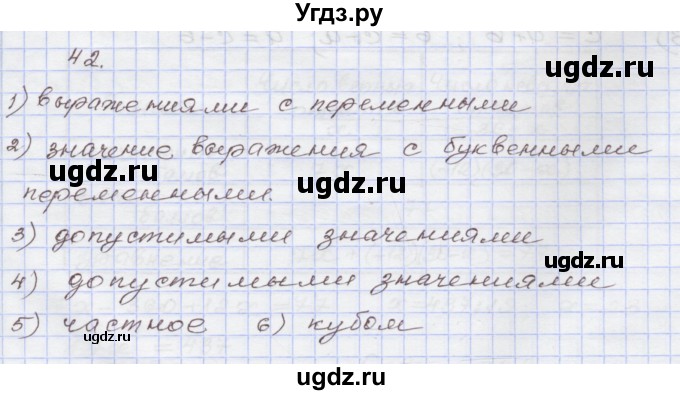 Угдз.ру
42.
ugdz.ru
ugdz.ru
1) выражениями с переменными
2) значение выражения с буквенными
ugdz.ru
ugdz.ru
переменными.
3) допустимыми значениями
ugdz.ru
4) допустимыми значениями
ugdz.ru
5) частное 6) кубом
ugdz.ru
ugdz.ru